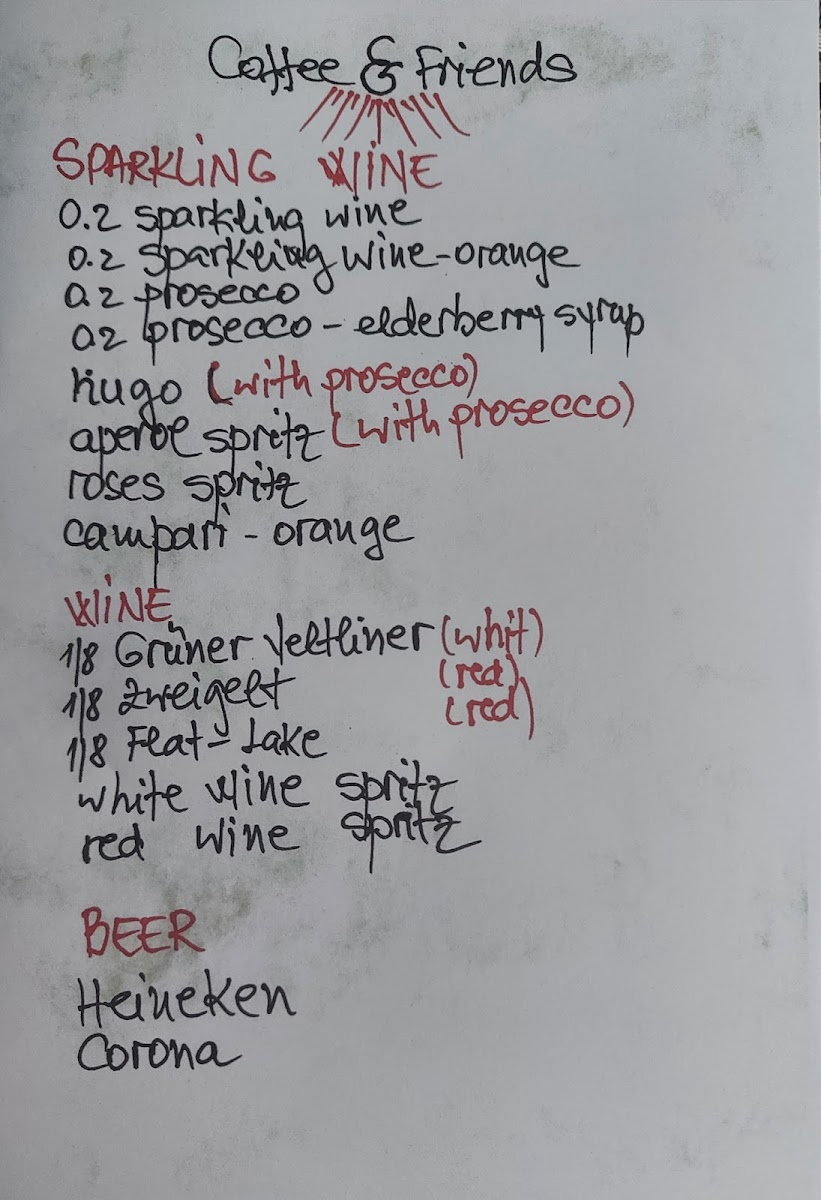 Coffee & Friends
SPARKLiNG WiNE
0.2 sparkling wine
0.2 sparkling wine-orange
0.2 prosecco
0.2 prosecco - elderberry syrap
hugo (with prosecco)
aperol spritz (with prosecco)
roses spritz
campari - orange
WiNE
1/8 Grüner Veltliner (whit)
1/8 Zweigelt (red)
1/8 Flat-Lake (red)
white wine spritz
red wine spritz
BEER
Heineken
Corona